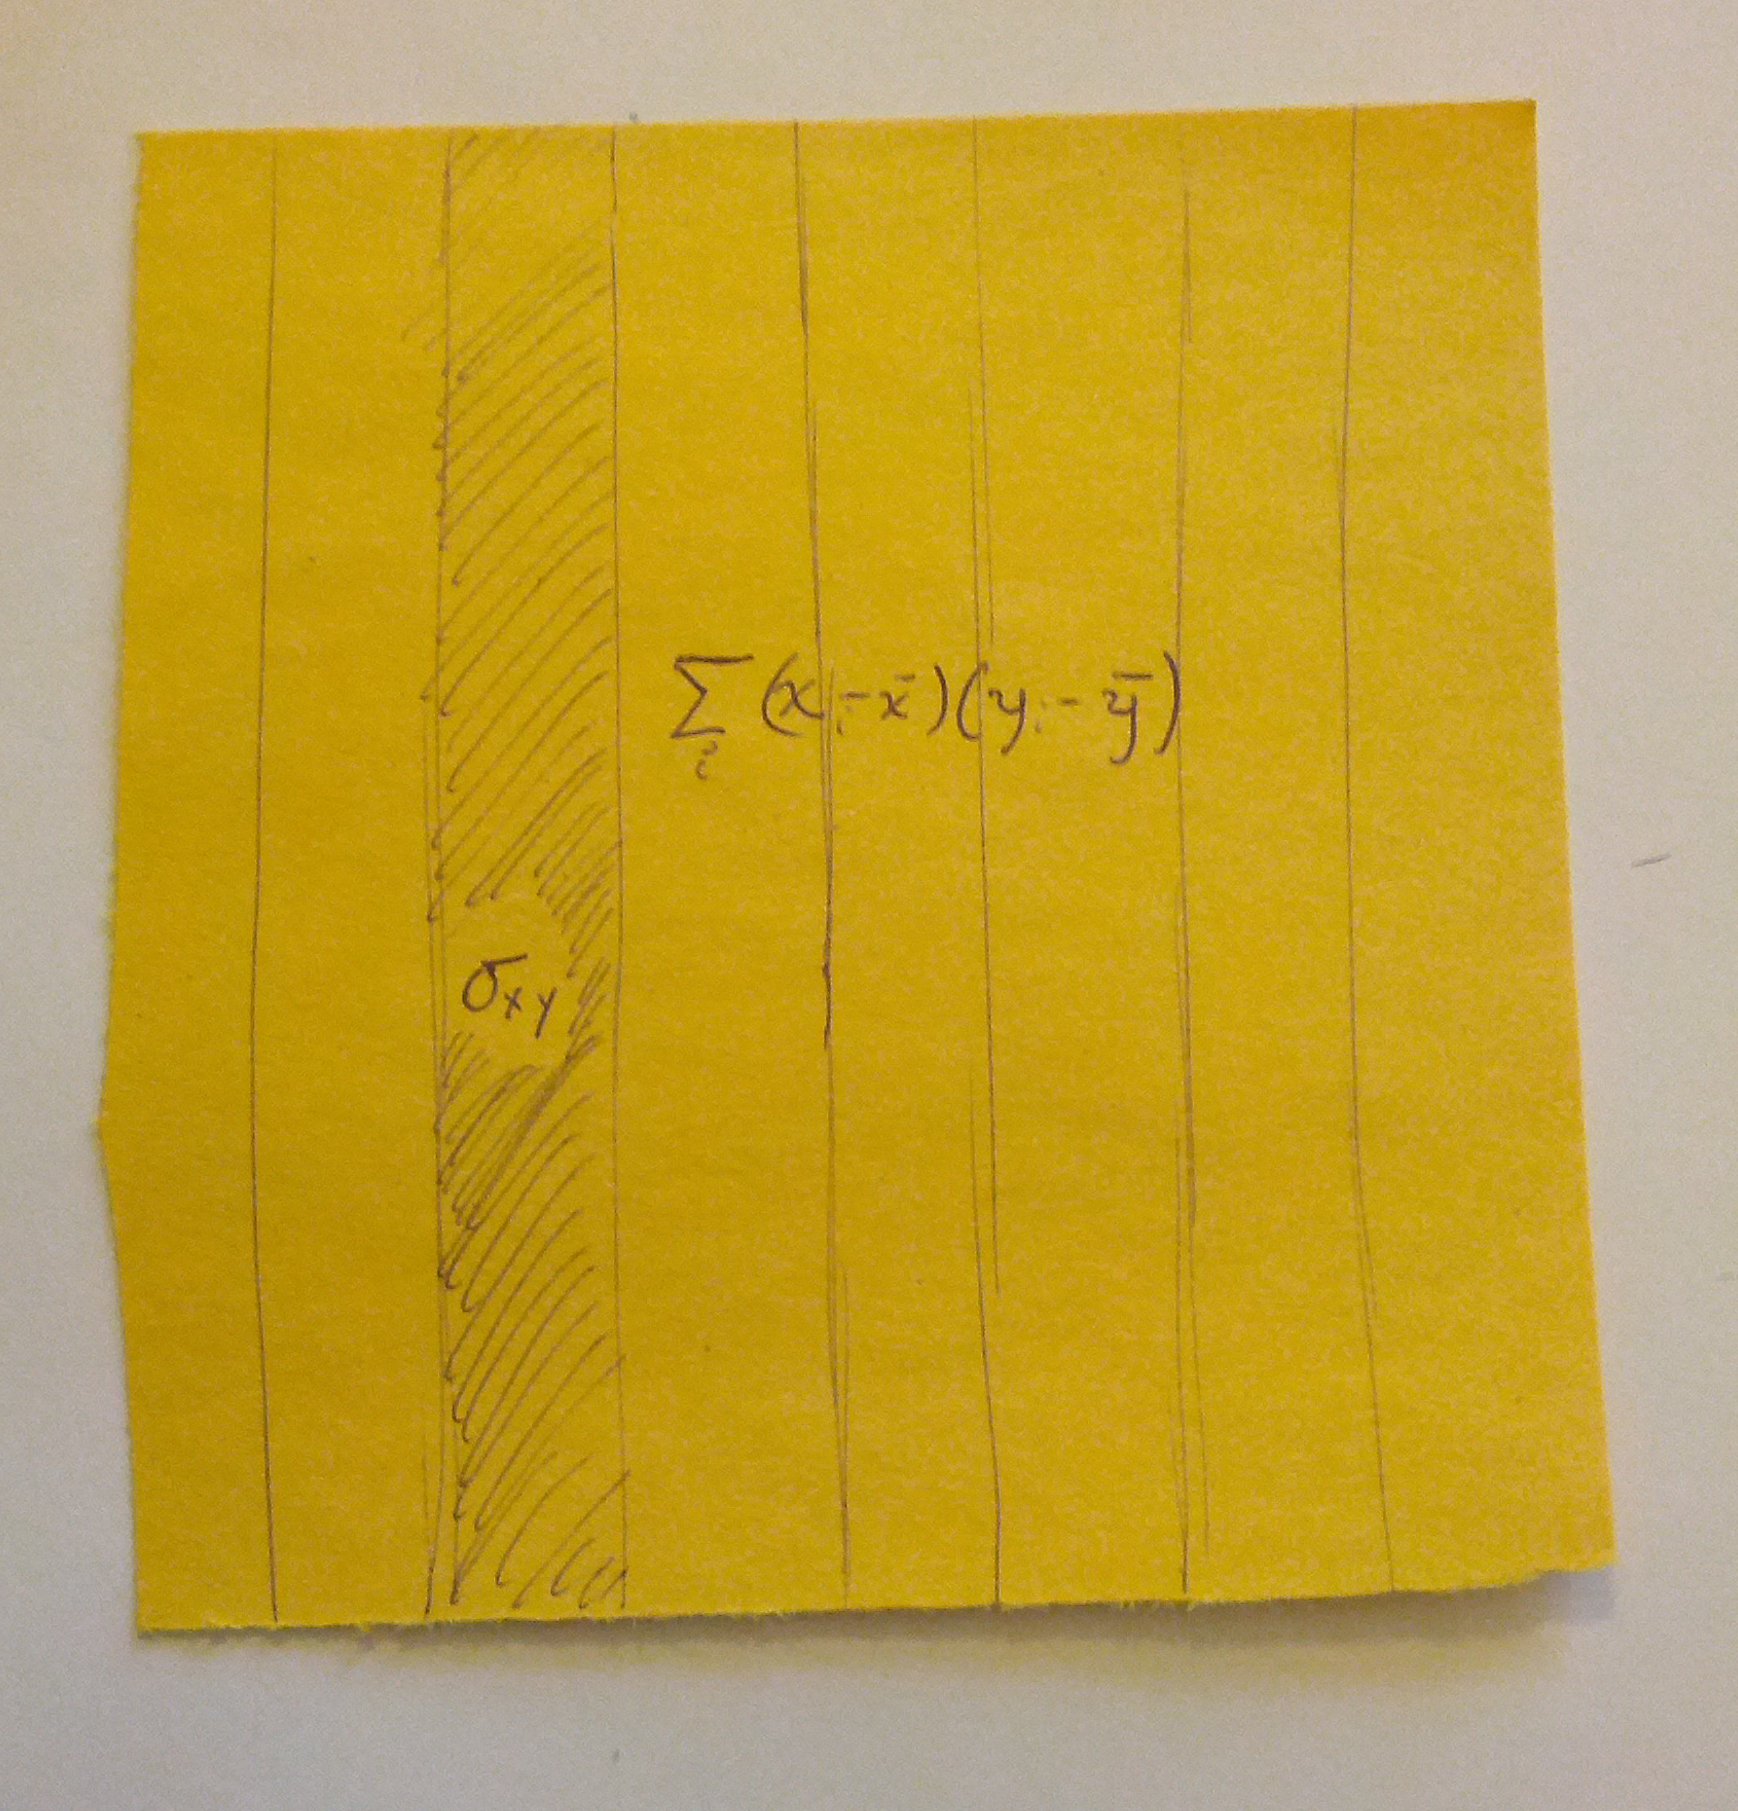 ∑ᵢ (xᵢ - x̄)(yᵢ - ȳ)
σxy